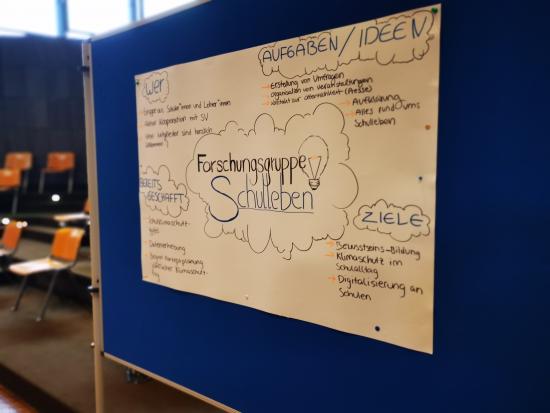 WER
Gruppe aus Schüler*innen und Lehrer*innen
Kooperation mit SV
neue Mitglieder sind herzlich
willkommen!
AUFGABEN/IDEEN
→ Erstellung von Umfragen
→ Organisation von Veranstaltungen
→ Kontakt zur Öffentlichkeit (Presse)
→ Aufklärung
→ Alles rund ums
Schulleben
Forschungsgruppe
Schulleben
BEREITS
GESCHAFFT
Schulklimaschutz-
Datenerhebung
Klimaschutz-
ZIELE
→ Bewusstseins-Bildung
→ Klimaschutz im
Schulalltag
→ Digitalisierung an
Schulen